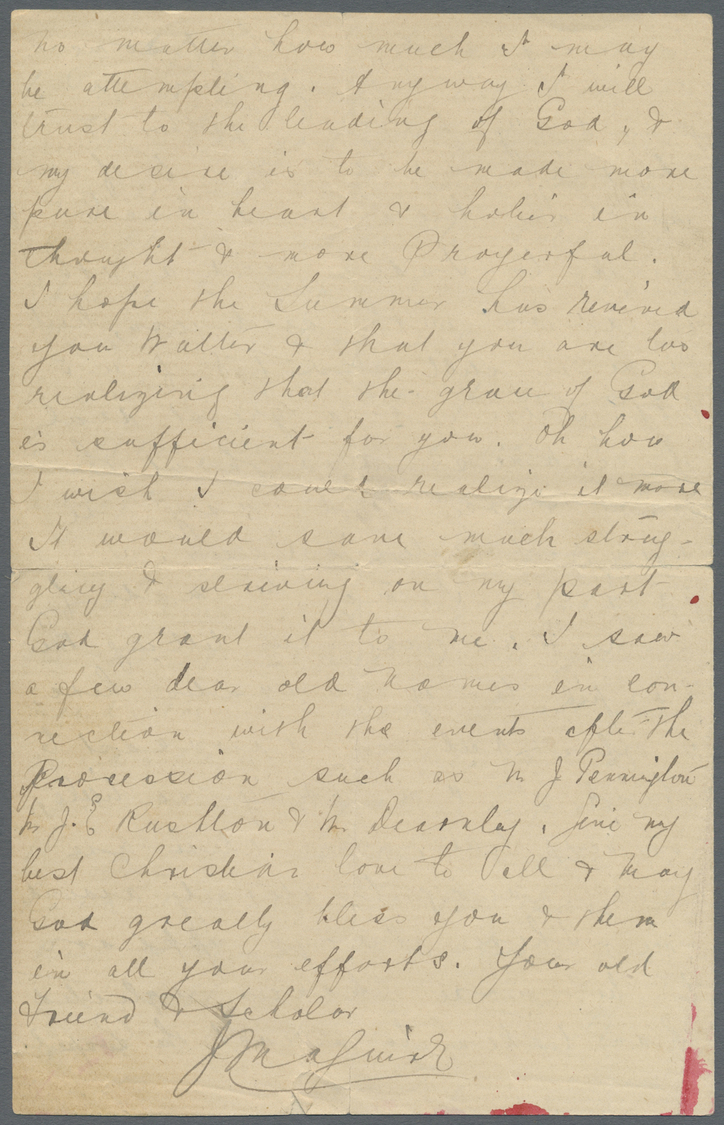 no matter how much I may
be attempting. Anyway I will
trust to the leading of God, &
my desire is to be made more
pure in heart & holier in
thought & more Prayerful.
I hope the Summer has revived
you Walter & that you are too
realizing that the grace of God
is sufficient for you. Oh how
I wish I could realize it more
It would save much strug-
gling & striving on my part
God grant it to me. I saw
a few dear old names in con-
nection with the events after the
Procession such as Mr J Pennington
Mr J. E Rushton & Mr Dearnley. Give my
best Christian love to all & may
God greatly bless you & them
in all your efforts. Your old
friend & Scholar
J Maguire